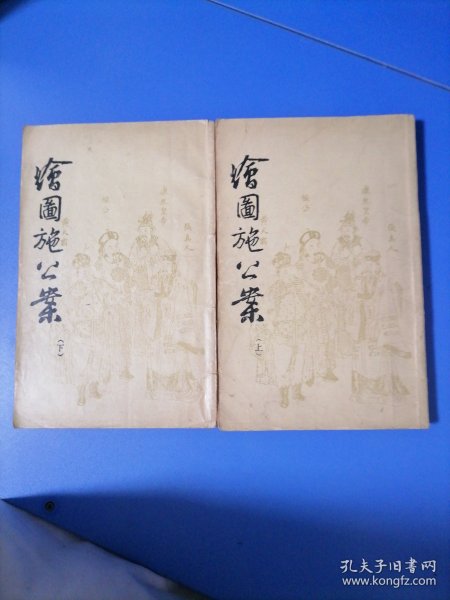 繪圖施公案
（下）
繪圖施公案
（上）
張真人
孔夫子旧书网
www.kongfz.com